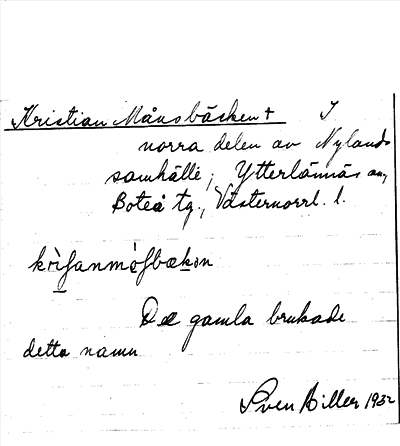 Kristian Månsbäcken + I
norra delen av Nylands
samhälle, Ytterlännäs
Boteå tg., Västernorrl. l.
De gamla brukade
detta namn
Sven Biller 1932